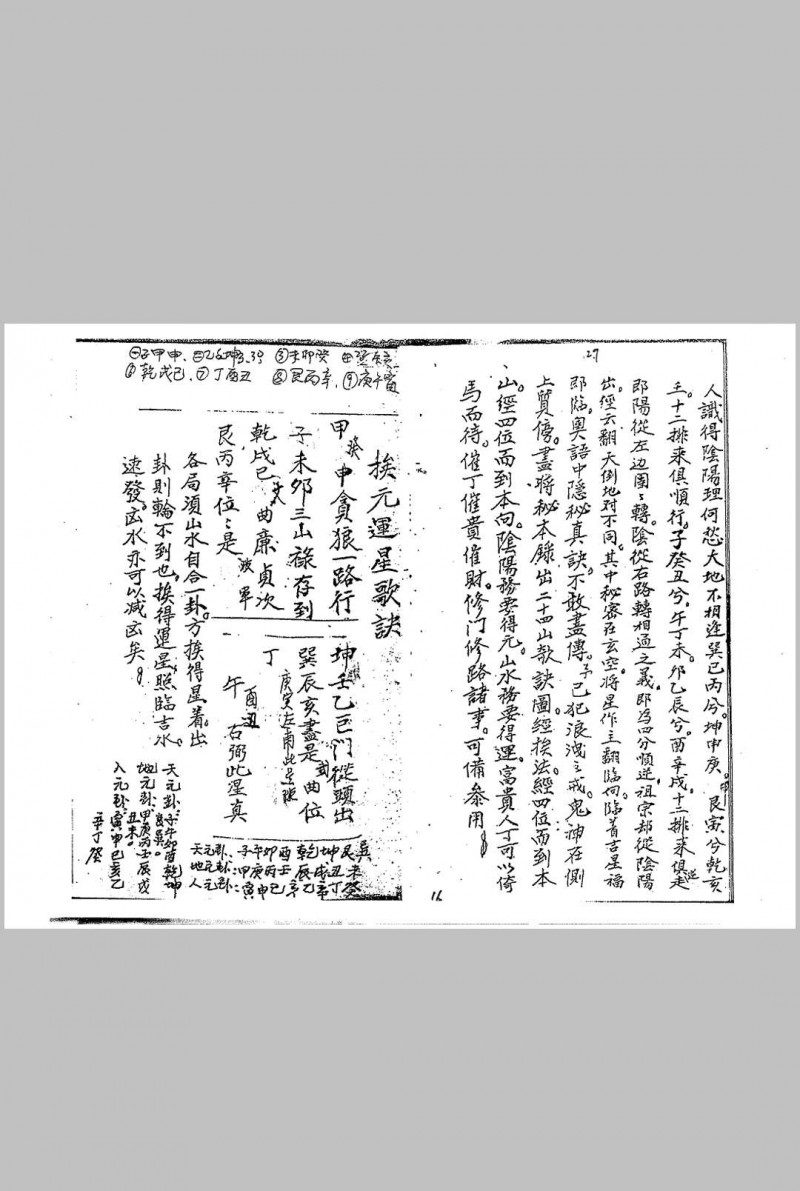 27
人識得陰陽理何愁大地不相逢巽巳丙兮。坤申庚。艮寅兮乾亥
壬。十二排來俱順行。子癸丑兮。午丁未。卯乙辰兮。酉辛戌。十二排來俱逆
即陽從左边團〻轉。陰從右路轉相通之義。即為四分順逆。祖宗却從陰陽
出。經云翻天倒地对不同。其中秘密在玄空。將星作主翻臨向。臨着吉星福
即臨。奧語中隱秘真訣。不敢盡傳。予已犯浪洩之戒。鬼神在側
上質傍。盡將秘本錄出二十四山歌訣圖。經挨法。經四位而到本
山。經四位而到本向。陰陽務要得元。山水務要得運。富貴人丁可以倚
馬而待。催丁催貴催財。修门修路諸事。可備參用。
16
㊀子甲申、㊁乙壬坤 ㊂未卯癸
⑥乾戌巳、⑦丁酉丑 ⑧艮丙辛、⑨庚午寅
挨元運星歌訣
甲癸申貪狼一路行
子未卯三山祿存到
乾戌巳文曲廉貞次
艮丙辛位〻是破軍
各局須山水自合一卦。方挨得星着。出
卦則輪不到也。挨得運星。照臨吉水。
速發。凶水亦可以減凶矣。
坤壬乙巨门從頭出
巽辰亥盡是武曲位
丁酉丑
午
右弼此星真
天元卦子午卯酉乾坤
艮巽。
地元卦甲庚丙壬辰戌
丑未。
人元卦寅申巳亥乙
辛丁癸
巽艮坤乾酉卯午子
未丑戌辰壬丙庚甲
癸丁辛乙亥巳申寅
天地人
元元元
卦卦卦